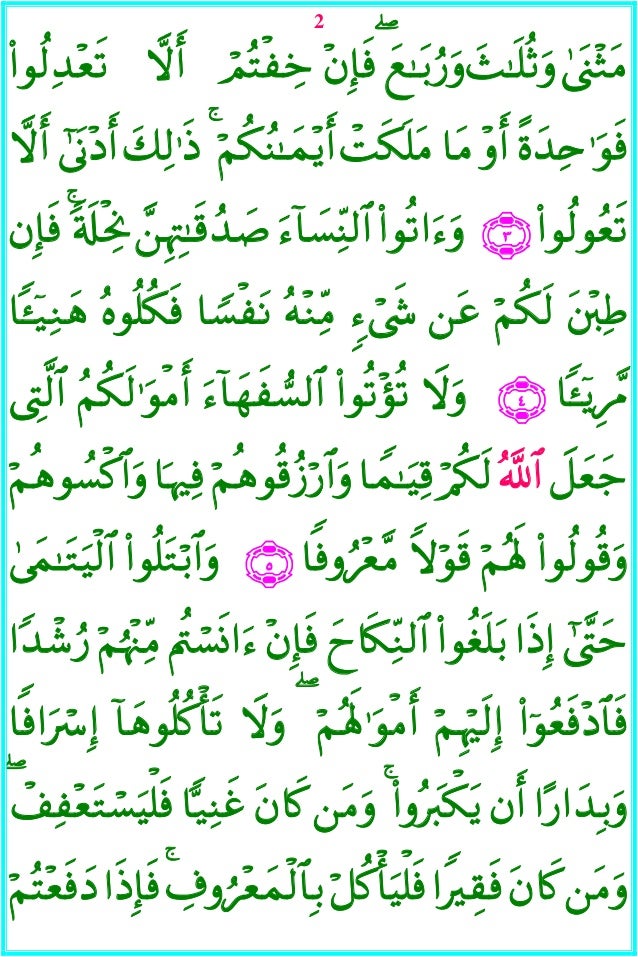 2
مَثْنَىٰ وَثُلَـٰثَ وَرُبَـٰعَ ۖ فَإِنْ خِفْتُمْ أَلَّا تَعْدِلُوا۟
فَوَٰحِدَةً أَوْ مَا مَلَكَتْ أَيْمَـٰنُكُمْ ۚ ذَٰلِكَ أَدْنَىٰٓ أَلَّا
تَعُولُوا۟ ٣ وَءَاتُوا۟ ٱلنِّسَآءَ صَدُقَـٰتِهِنَّ نِحْلَةً ۚ فَإِن
طِبْنَ لَكُمْ عَن شَىْءٍ مِّنْهُ نَفْسًا فَكُلُوهُ هَنِيٓـًٔا
مَّرِيٓـًٔا ٤ وَلَا تُؤْتُوا۟ ٱلسُّفَهَآءَ أَمْوَٰلَكُمُ ٱلَّتِى
جَعَلَ ٱللَّهُ لَكُمْ قِيَـٰمًا وَٱرْزُقُوهُمْ فِيهَا وَٱكْسُوهُمْ
وَقُولُوا۟ لَهُمْ قَوْلًا مَّعْرُوفًا ٥ وَٱبْتَلُوا۟ ٱلْيَتَـٰمَىٰ
حَتَّىٰٓ إِذَا بَلَغُوا۟ ٱلنِّكَاحَ فَإِنْ ءَانَسْتُم مِّنْهُمْ رُشْدًا
فَٱدْفَعُوٓا۟ إِلَيْهِمْ أَمْوَٰلَهُمْ ۖ وَلَا تَأْكُلُوهَآ إِسْرَافًا
وَبِدَارًا أَن يَكْبَرُوا۟ ۚ وَمَن كَانَ غَنِيًّا فَلْيَسْتَعْفِفْ ۖ
وَمَن كَانَ فَقِيرًا فَلْيَأْكُلْ بِٱلْمَعْرُوفِ ۚ فَإِذَا دَفَعْتُمْ